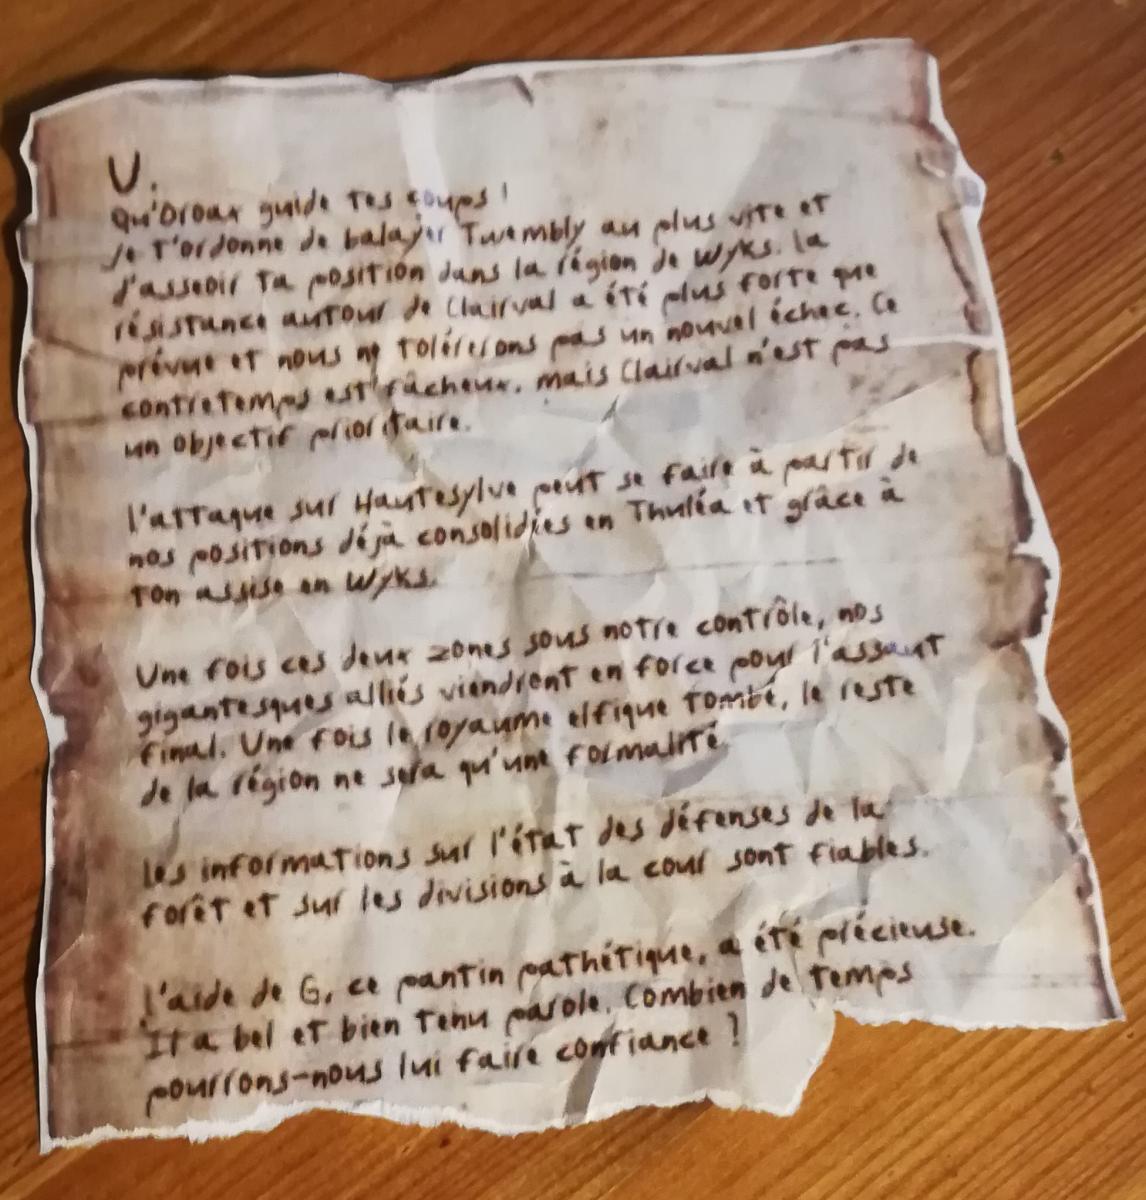 U.
Qu'Oroax guide tes coups !
Je t'ordonne de balayer Twembly au plus vite et
d'asseoir ta position dans la région de Wyks. La
résistance autour de Clairval a été plus forte que
prévue et nous ne tolérerons pas un nouvel échec. Ce
contretemps est fâcheux, mais Clairval n'est pas
un objectif prioritaire.
L'attaque sur Hautesylve peut se faire à partir de
nos positions déjà consolidées en Thuléa et grâce à
ton assise en Wyks.
Une fois ces deux zones sous notre contrôle, nos
gigantesques alliés viendront en force pour l'assaut
final. Une fois le royaume elfique tombé, le reste
de la région ne sera qu'une formalité.
Les informations sur l'état des défenses de la
forêt et sur les divisions à la cour sont fiables.
L'aide de G, ce pantin pathétique, a été précieuse.
Il a bel et bien tenu parole. Combien de temps
pourrons-nous lui faire confiance ?